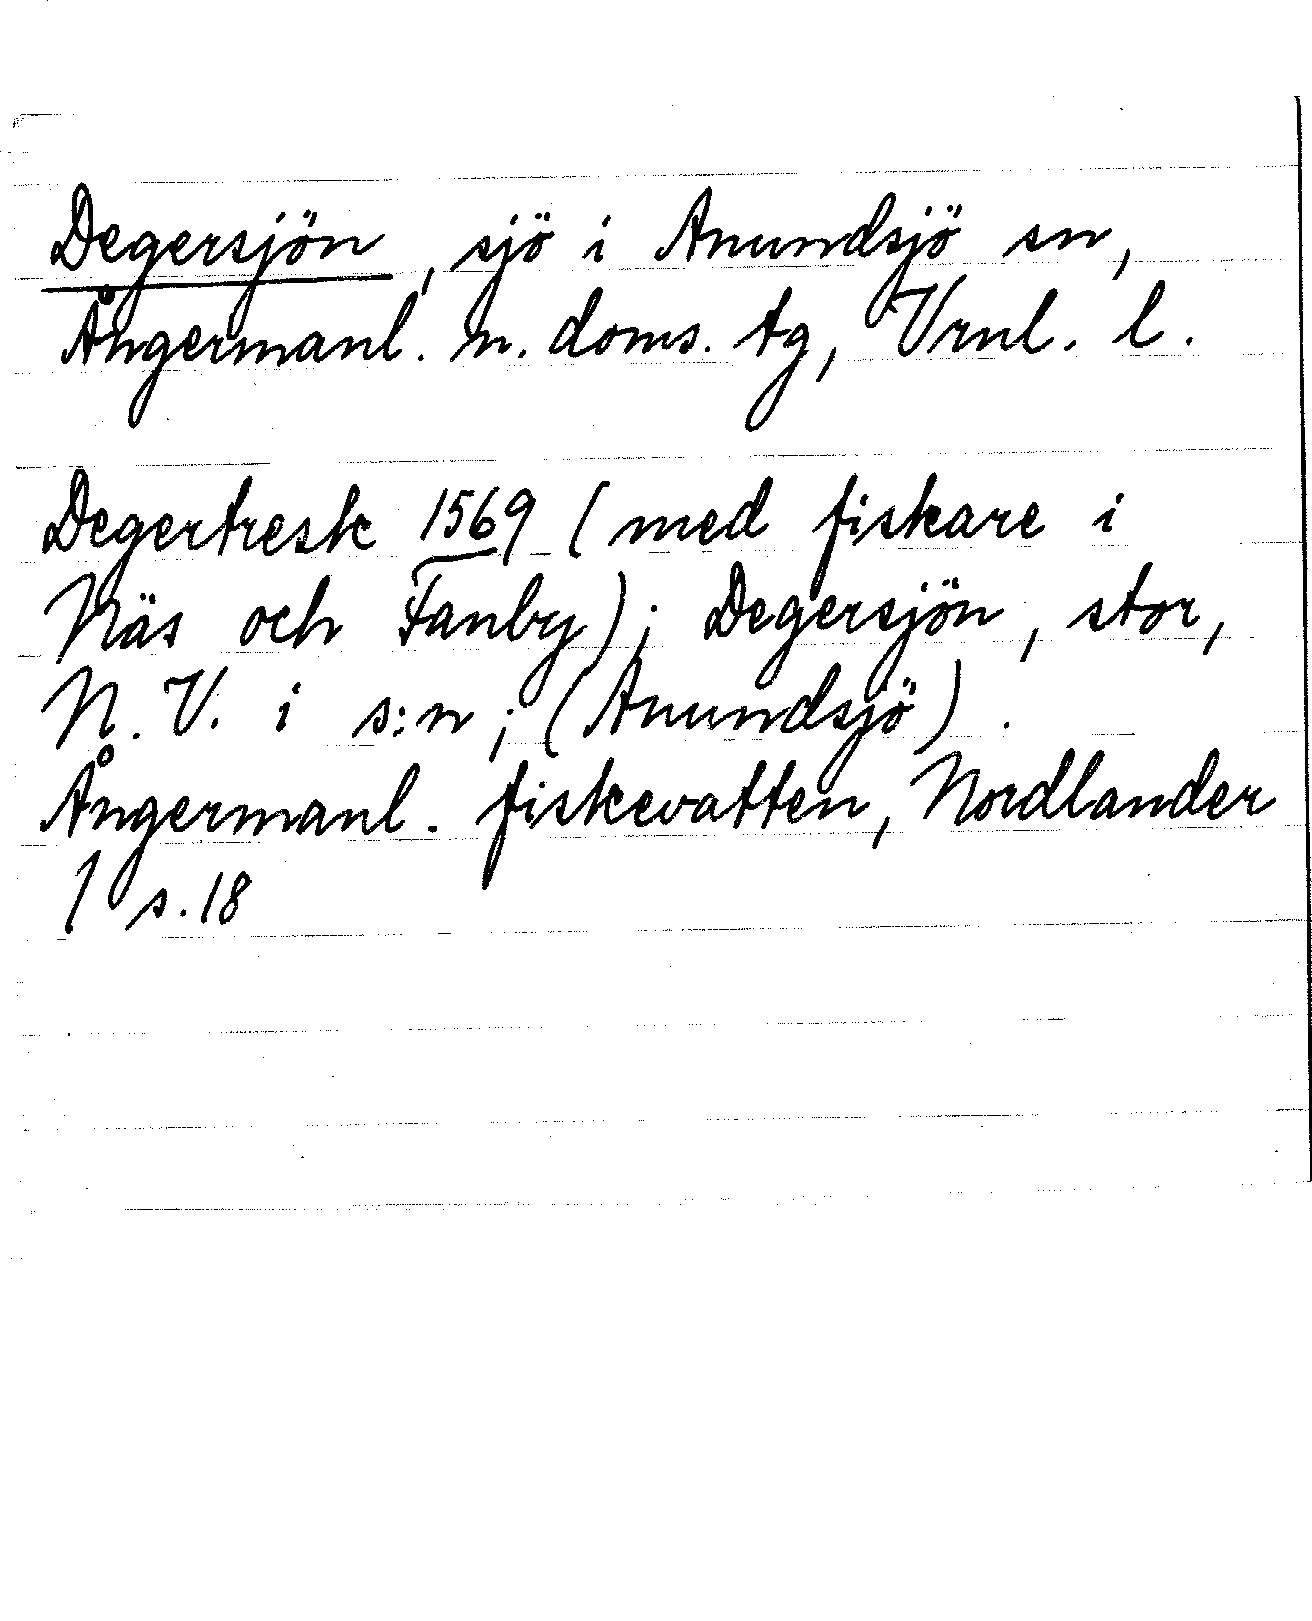 Degersjön, sjö i Anundsjö sn,
Ångermanl. n. doms. tg, Vrnl. l.
Degertresk 1569 (med fiskare i
Näs och Fanby); Degersjön, stor,
N. V. i s:n; (Anundsjö).
Ångermanl. fiskevatten, Nordlander
1 s. 18